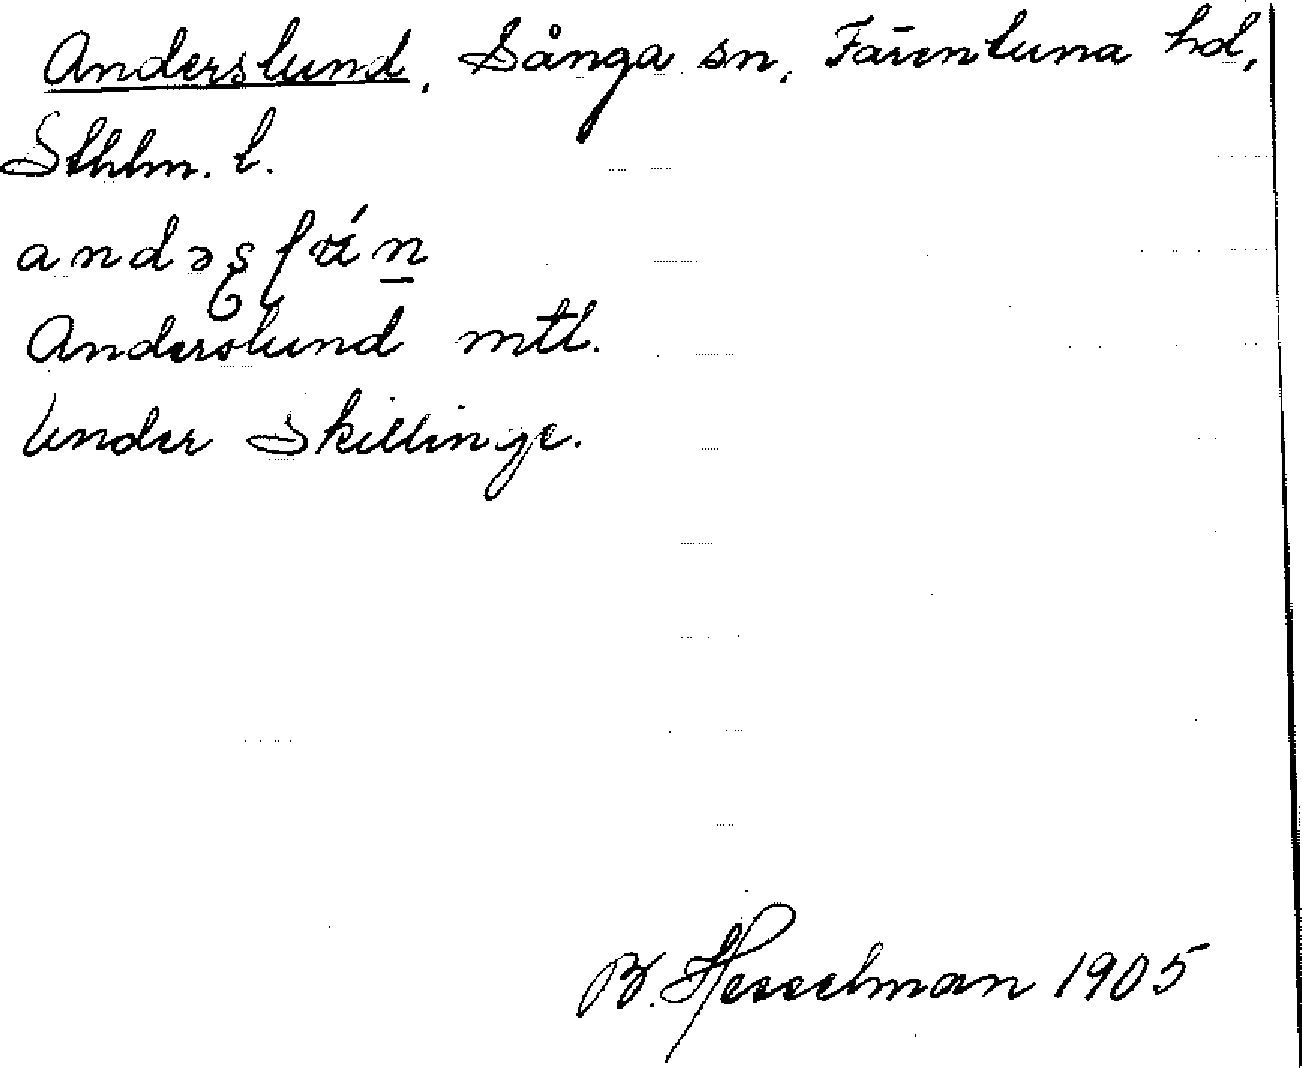 Anderslund, Sånga sn, Färentuna hd,
Sthlm. l.
Anderslund mtl.
Under Skillinge.
B. Hesselman 1905